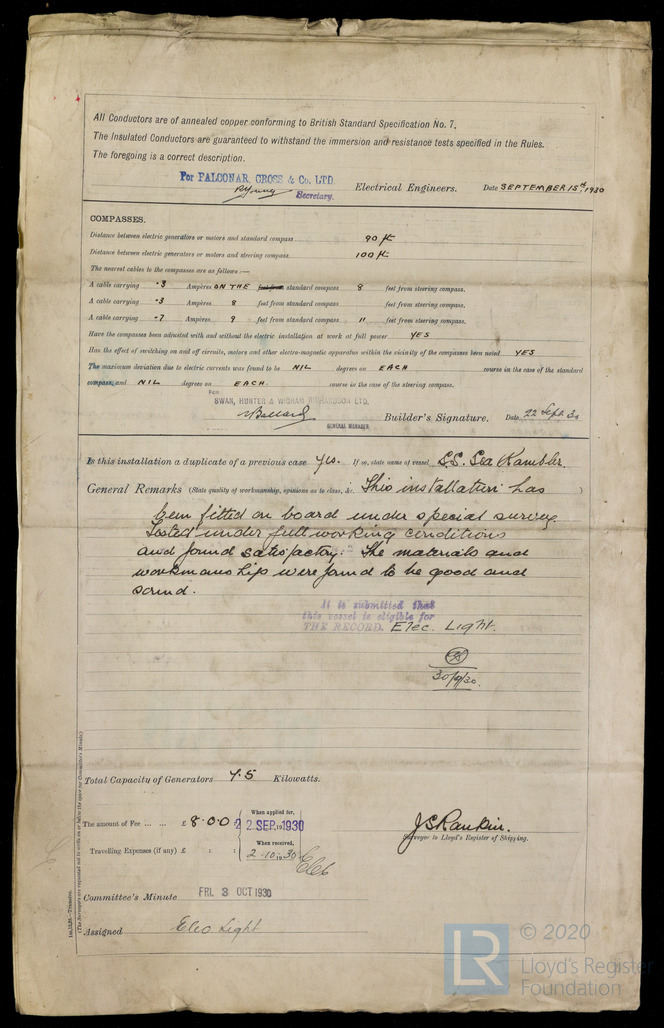 All Conductors are of annealed copper conforming to British Standard Specification No. 7.
The Insulated Conductors are guaranteed to withstand the immersion and resistance tests specified in the Rules.
The foregoing is a correct description.
For FALCONAR, CROSS & Co. LTD
Secretary. Electrical Engineers. Date SEPTEMBER 15st, 1930
COMPASSES.
Distance between electric generators or motors and standard compass 90 ft
Distance between electric generators or motors and steering compass 100 ft
The nearest cables to the compasses are as follows:—
A cable carrying ·3 Ampères ON THE feet from standard compass 8 feet from steering compass.
A cable carrying ·3 Ampères 8 feet from standard compass feet from steering compass.
A cable carrying ·7 Ampères 9 feet from standard compass 11 feet from steering compass.
Have the compasses been adjusted with and without the electric installation at work at full power YES
Has the effect of switching on and off circuits, motors and other electro-magnetic apparatus within the vicinity of the compasses been noted YES
The maximum deviation due to electric currents was found to be NIL degrees on EACH course in the case of the standard
compass, and NIL degrees on EACH. course in the case of the steering compass.
FOR
SWAN, HUNTER & WIGHAM RICHARDSON LTD.
Builder's Signature. Date 22 Sept. 30
GENERAL MANAGER
Is this installation a duplicate of a previous case Yes. If so, state name of vessel S.S. Sea Rambler.
General Remarks (State quality of workmanship, opinions as to class, &c. This installation has )
been fitted on board under special survey.
Tested under full working conditions
and found satisfactory. The materials and
workmanship were found to be good and
sound.
It is submitted that
this vessel is eligible for
THE RECORD. Elec. Light.
30/9/30.
Total Capacity of Generators 7.5 Kilowatts.
The amount of Fee ... ... £ 8 : 0 : 0 When applied for, 22 SEP. 1930
When received,
Travelling Expenses (if any) £ : : 2.10.1930
J S Rankin.
Surveyor to Lloyd's Register of Shipping.
Committee's Minute FRI. 3 OCT 1930
Assigned Elec Light
(The Surveyors are requested not to write on or below the space for Committee's Minute.)
© 2020
LR
Lloyd's Register
Foundation